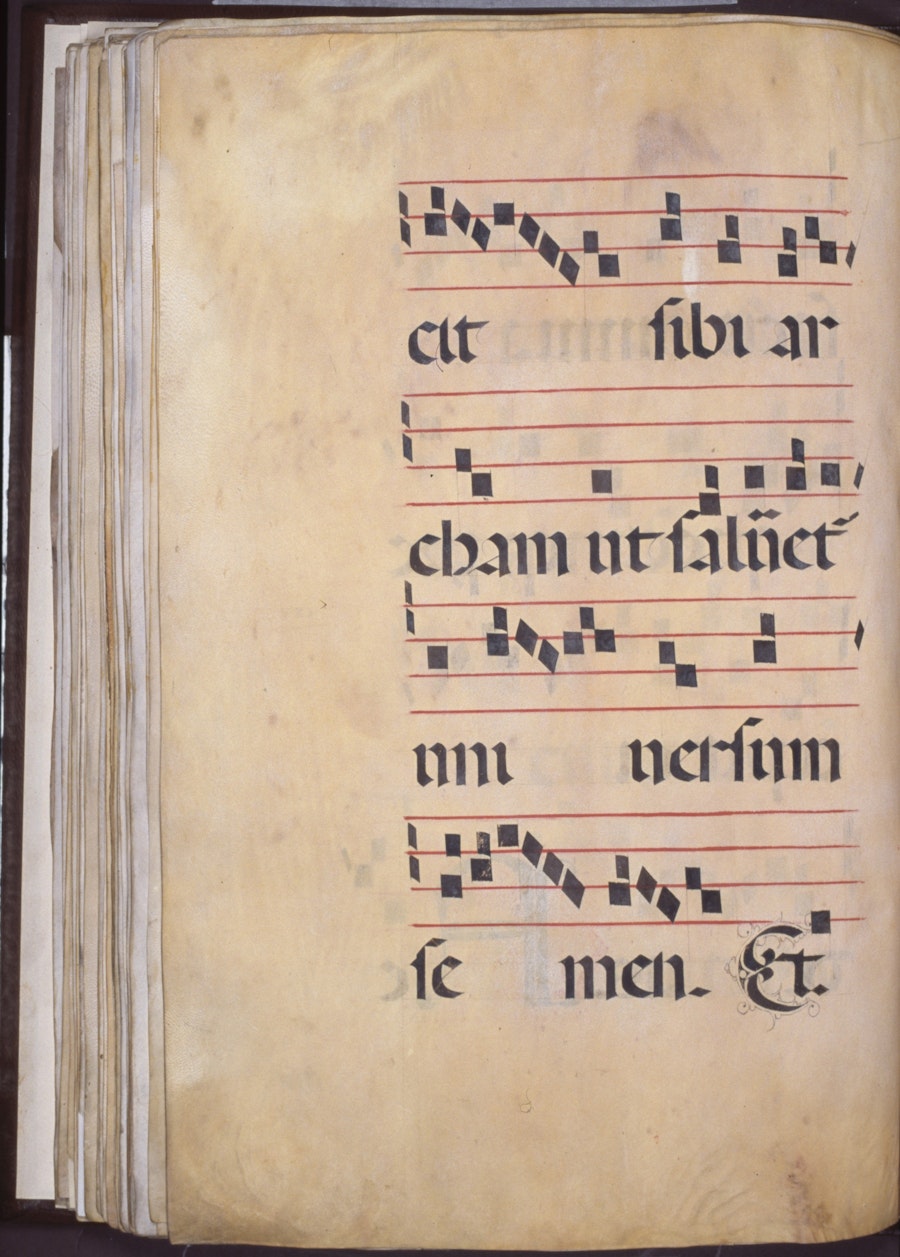 cit ſibi ar
cham ut ſalũet᷑
uni uerſum
ſe men. Et.